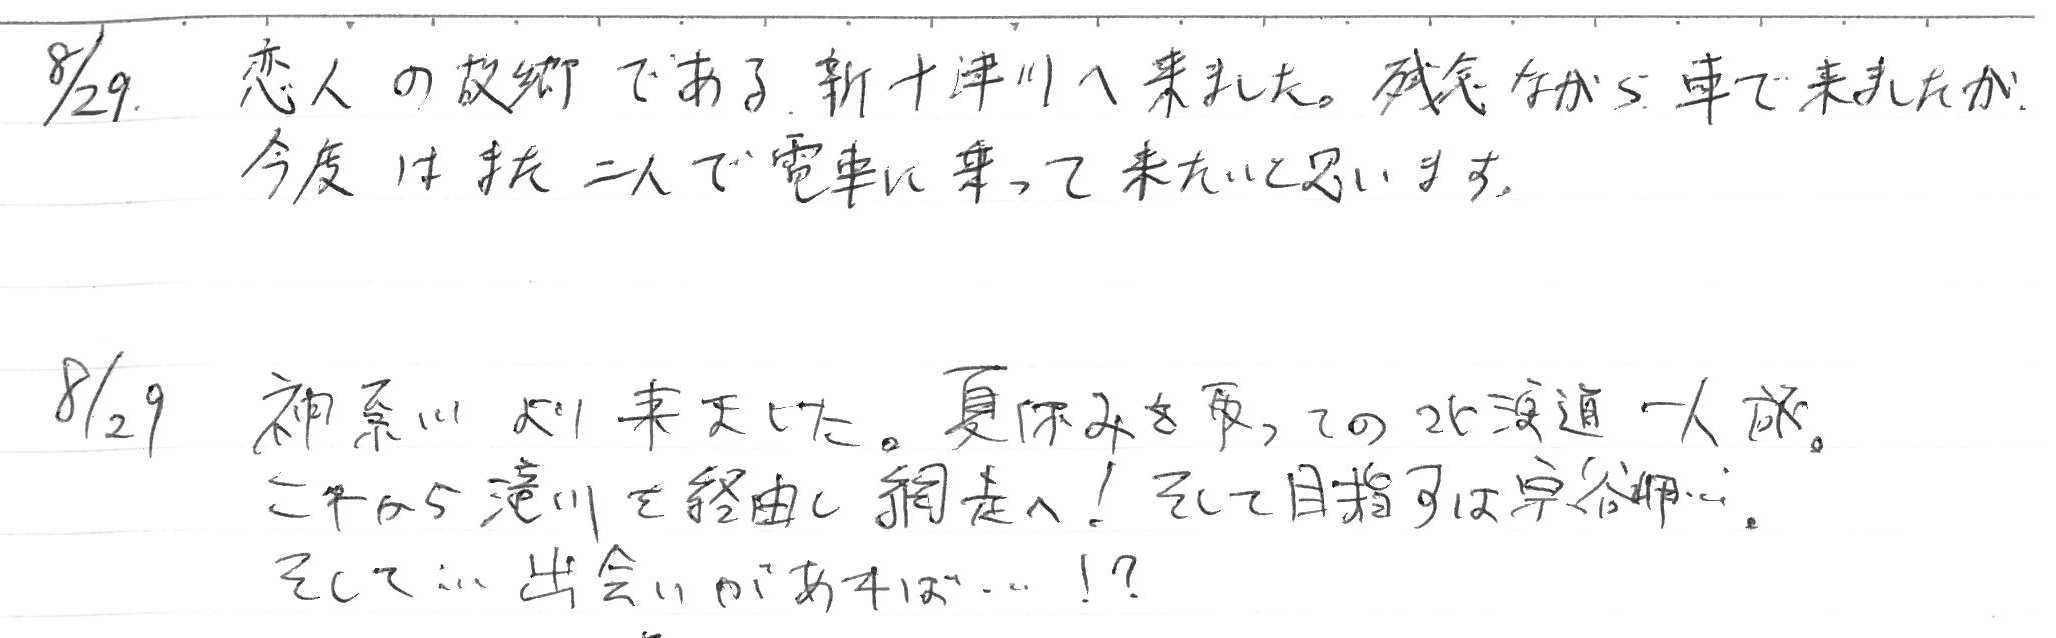 8/29. 恋人の故郷である新十津川へ来ました。残念ながら車で来ましたが.
今度はまた二人で電車に乗って来たいと思います。
8/29 神奈川より来ました。夏休みを取っての北海道一人旅。
これから滝川を経由し網走へ！そして目指すは宗谷岬…。
そして… 出会いがあれば…！？